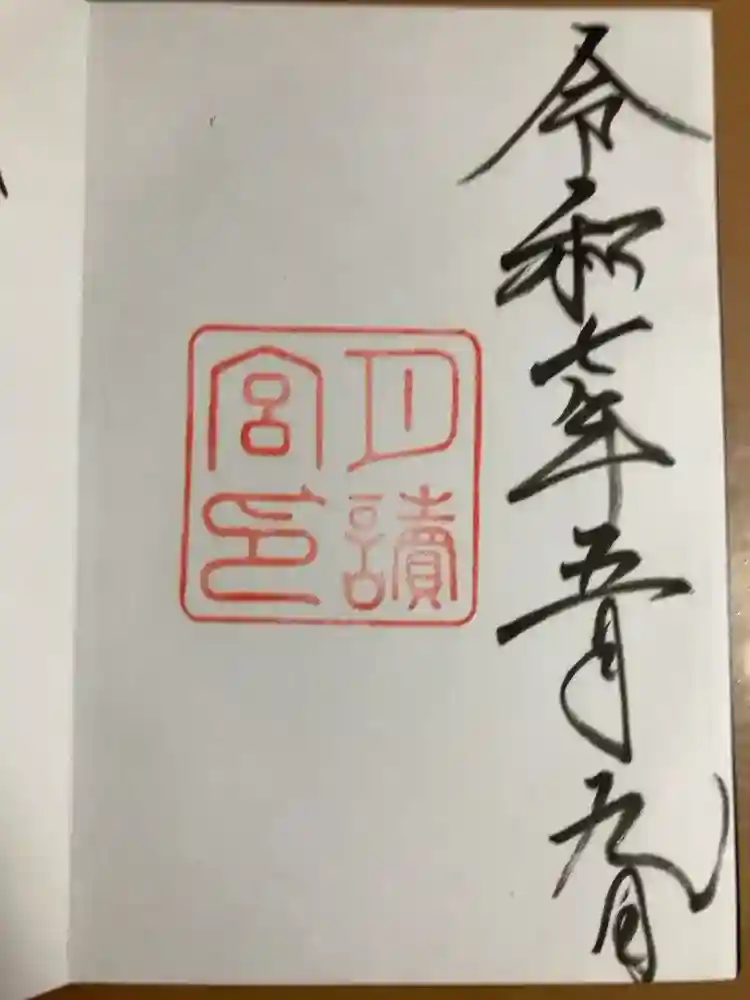 令和七年五月九日
月讀
宮印